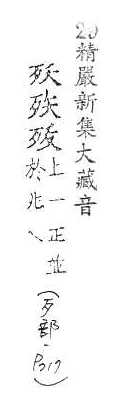 20精嚴新集大藏音
殀
上一正並
於兆乀
(歹部.P017)